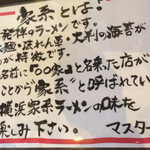 家系とは・
発祥のラーメンです。
太麺・ほうれん草・大判の海苔が
が特徴です。
名前に「〇〇家」と名乗った店が
ことから"家系"と呼ばれてい
横浜家系ラーメンの味を
楽しみ下さい。
マスター